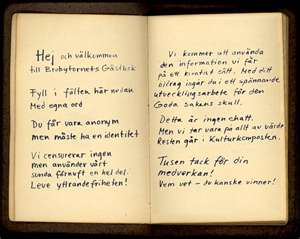 Hej och välkommen
till Brobytornets Gästbok
Fyll i fälten här nedan
Med egna ord
Du får vara anonym
men måste ha en identitet
Vi censurerar ingen
men använder vårt
sunda förnuft en hel del.
Leve yttrandefriheten!
Vi kommer att använda
den information vi får
på ett kreativt sätt. Med ditt
bidrag ingår du i ett spännande
utvecklingsarbete för den
Goda Sakens skull.
Detta är ingen chatt.
Men vi tar vara på allt av värde
Resten går i Kulturkomposten.
Tusen tack för din
medverkan!
Vem vet - du kanske vinner!